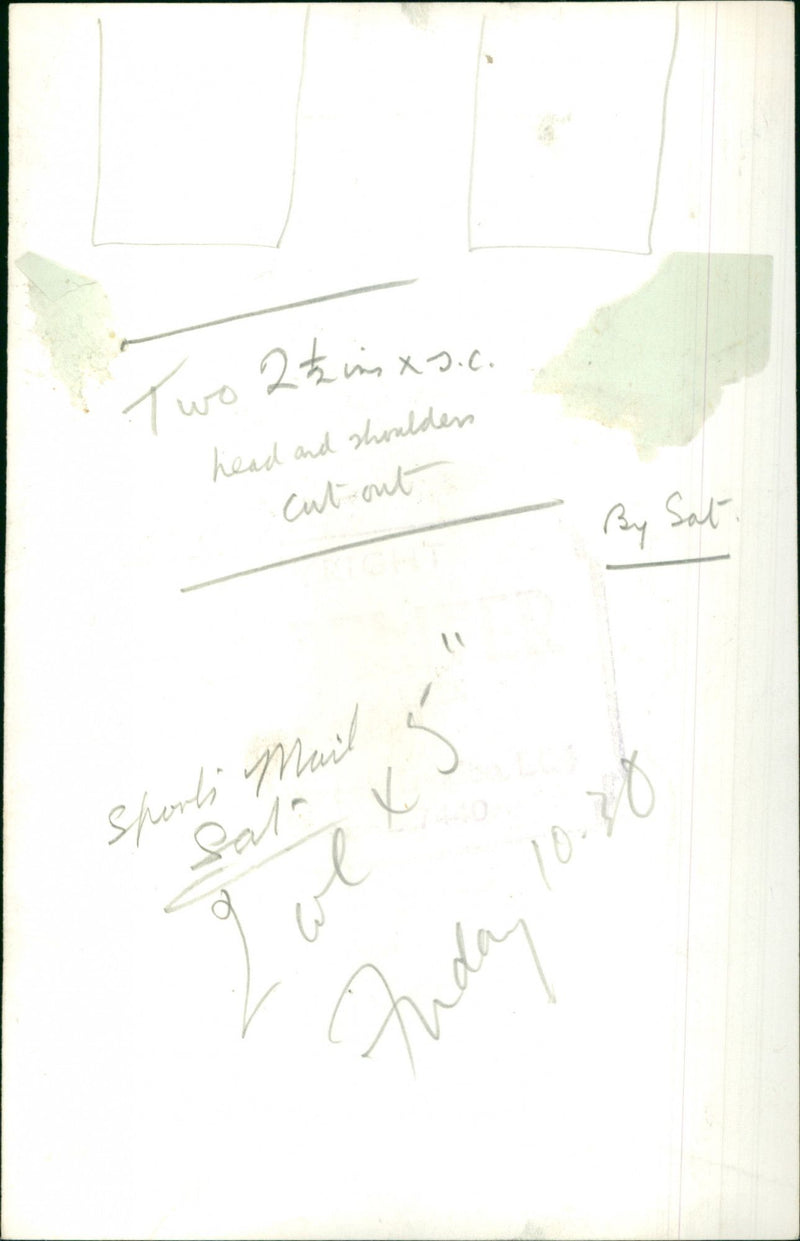 Two 2½ ins x s.c.
head and shoulders
cut-out
By Sat.
Sports Mail
Sat
2 col x 5"
Friday 10.30